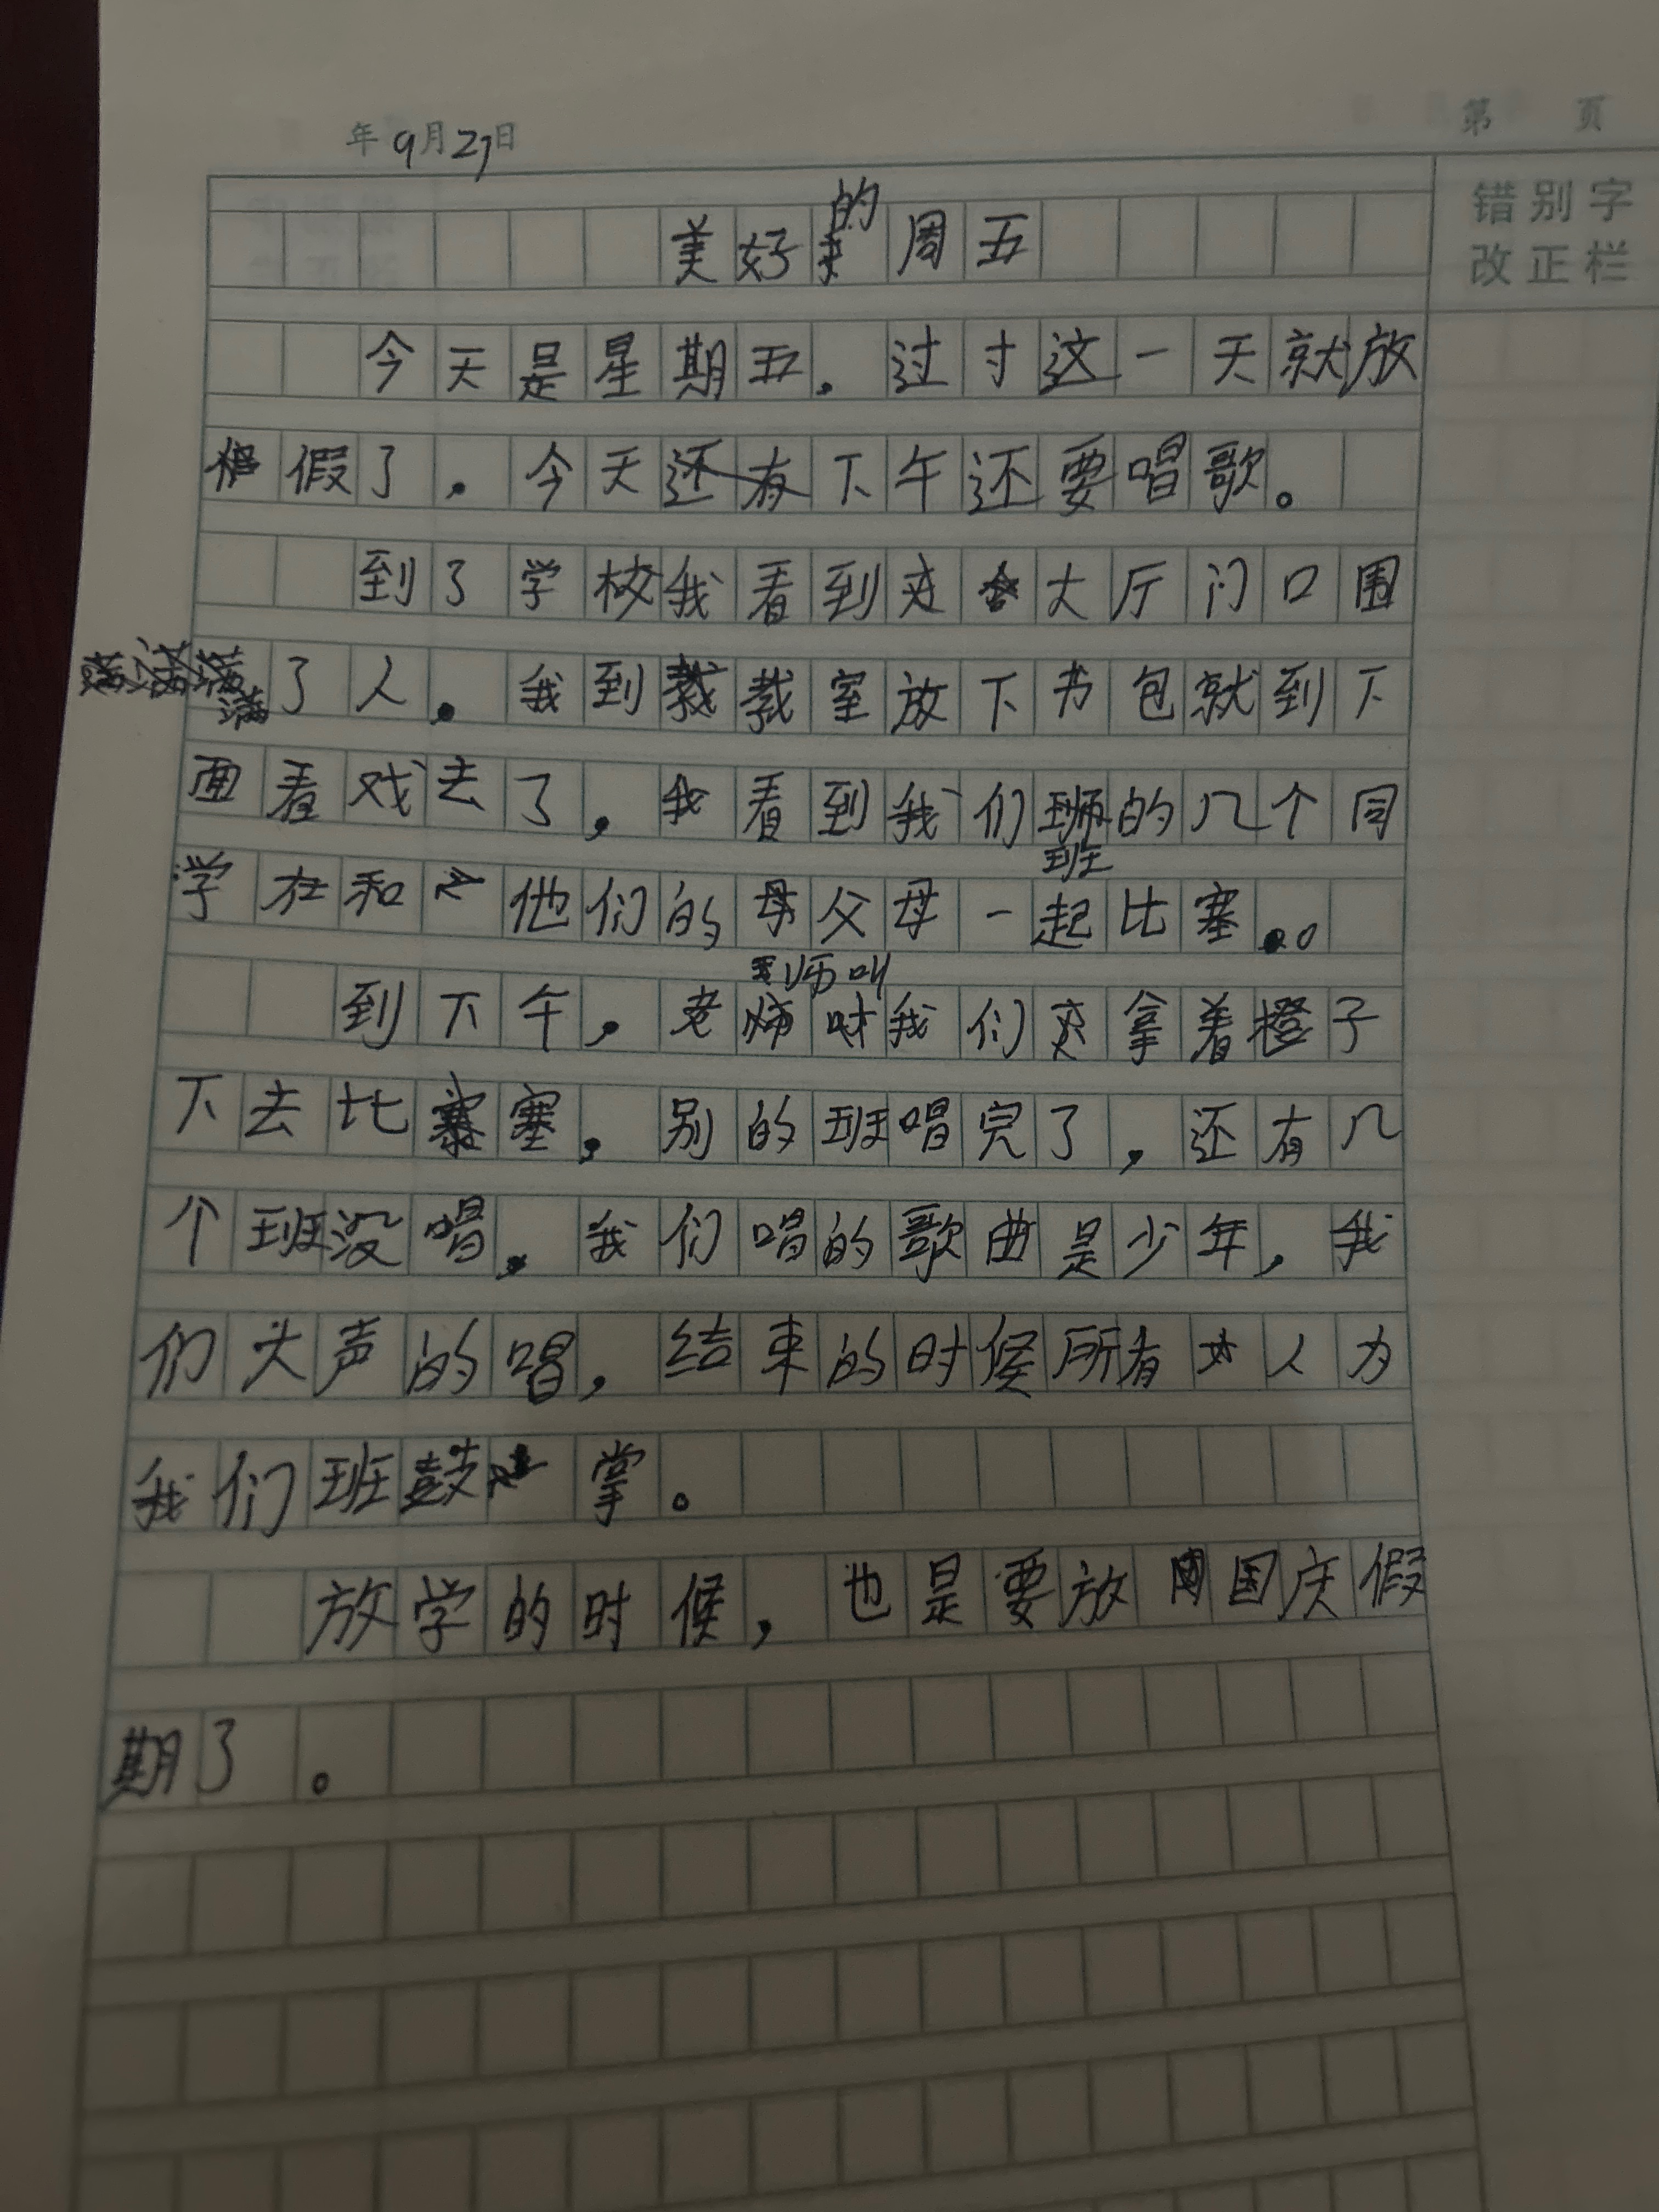 年9月27日
第 页
错别字
改正栏
美好的周五
今天是星期五，过寸这一天就放
假了，今天下午还要唱歌。
到了学校我看到大厅门口围
满了人，我到教室放下书包就到下
面看戏去了，我看到我们班的几个同
学在和他们的父母一起比塞。
到下午，老师叫我们拿着橙子
下去比塞，别的班唱完了，还有几
个班没唱，我们唱的歌曲是少年，我
们大声的唱，结束的时候所有人为
我们班鼓掌。
放学的时候，也是要放国庆假
期了。